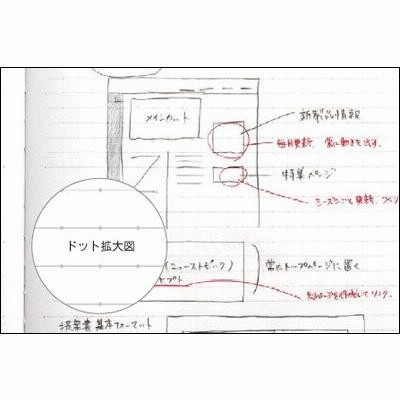 メインカット
新製品情報
毎日更新、常に動きを出す。
特集ページ
シーズンごと更新、
ドット拡大図
(ニューストピック)
常にトップページに置く
提案書 基本フォーマット